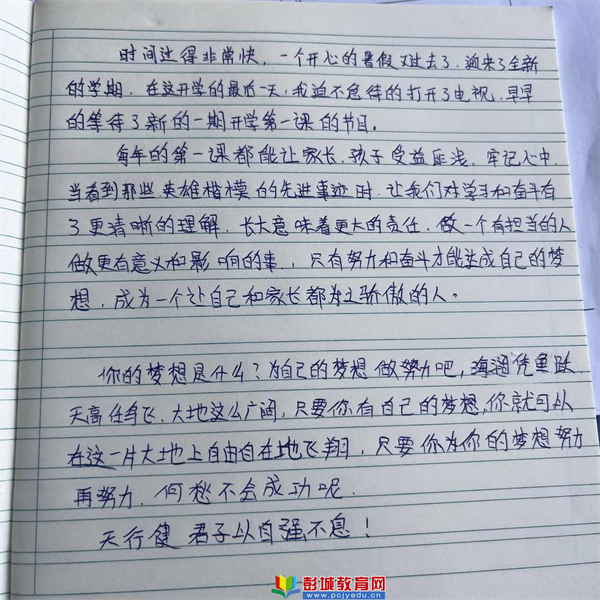 时间过得非常快，一个开心的暑假又过去了，迎来了全新
的学期，在这开学的最后一天，我迫不急待的打开了电视，早早
的等待了新的一期开学第一课的节目。
每年的第一课都能让家长，孩子受益匪浅，牢记心中，
当看到那些英雄楷模的先进事迹时，让我们对学习和奋斗有
了更清晰的理解，长大意味着更大的责任，做一个有担当的人
做更有意义和影响的事，只有努力和奋斗才能达成自己的梦
想，成为一个让自己和家长都为之骄傲的人。
你的梦想是什么？为自己的梦想做努力吧，海阔凭鱼跃
天高任鸟飞，大地这么广阔，只要你有自己的梦想，你就可以
在这一片大地上自由自在地飞翔，只要你为你的梦想努力
再努力，何愁不会成功呢，
天行健 君子以自强不息！
彭城教育网
www.pcjyedu.cn